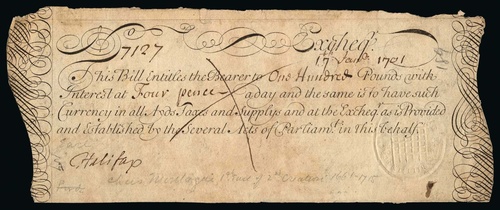 7127 Exchheqr.
17th Janry. 1701
This Bill Entitles the Bearer to One Hundred Pounds with
Interest at Four pence a day and the same is to have such
Currency in all Ayds Taxes and Supplys and at the Excheqr. as is Provided
and Established by the Several Acts of Parliamt. in this behalf.
Halifax